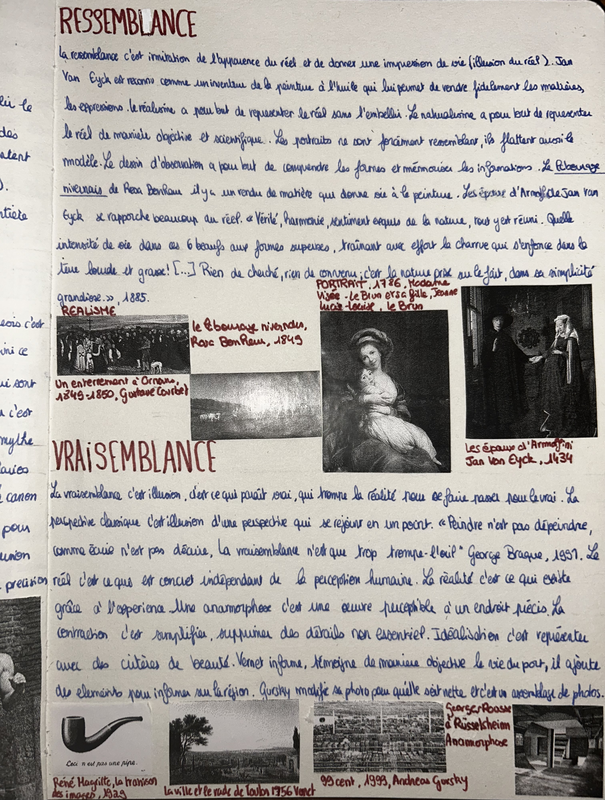 RESSEMBLANCE
La ressemblance c'est imitation de l'apparence du réel et de donner une impression de vie (illusion du réel). Jan
Van Eyck est reconnu comme un inventeur de la peinture à l'huile qui lui permet de rendre fidèlement les matières,
les expressions. le réalisme a pour but de représenter le réel sans l'embellir. Le naturalisme a pour but de représenter
le réel de manière objective et scientifique. Les portraits ne sont forcément ressemblant, ils flattent aussi le
modèle. Le dessin d'observation a pour but de comprendre les formes et mémoriser les informations. Le labourage
nivernais de Rosa Bonheur il y a un rendu de matière qui donne vie à la peinture. Les époux d'Arnolfini de Jan Van
Eyck se rapproche beaucoup du réel. « Vérité, harmonie, sentiment exquis de la nature, tout y est réuni. Quelle
intensité de vie dans ces 6 bœufs aux formes superbes, traînant avec effort la charrue qui s'enfonce dans la
terre lourde et grasse! [...] Rien de cherché, rien de convenu; c'est la nature prise sur le fait, dans sa simplicité
grandiose. », 1885.
REALISME
Un enterrement à Ornans,
1849-1850, Gustave Courbet
le labourage nivernais,
Rosa Bonheur, 1849
PORTRAIT, 1786, Madame
Vigée-le Brun et sa fille, Jeanne
Lucie-Louise, le Brun
Les époux d'Arnolfini
Jan Van Eyck, 1434
VRAISEMBLANCE
La vraisemblance c'est illusion, c'est ce qui paraît vrai, qui trompe la réalité pour se faire passer pour le vrai. La
perspective classique c'est illusion d'une perspective qui se rejoins en un point. « Peindre n'est pas dépeindre,
comme écrire n'est pas décrire, La vraisemblance n'est que trop trompe-l'œil" George Braque, Le
réel c'est ce que est conçus indépendant de la perception humaine. La réalité c'est ce qui existe
grâce à l'expérience Une anamorphose c'est une œuvre perceptible à un endroit précis. La
contraction c'est simplifier, supprimer des détails non essentiel. Idéalisation c'est représenter
avec des critères de beauté. Vernet informe, témoigne de manière objective la vie du port, il ajoute
des éléments pour informer sur la région. Gursky modifie sa photo pour qu'elle soit nette et c'est un assemblage de photos.
Ceci n'est pas une pipe.
René Magritte, la trahison
des images, 1929
la ville et la rade de Toulon 1756 Vernet
99 cent, 1999, Andreas Gursky
Georges Rousse
à Rüsselsheim
Anamorphose
des
).
eois c'est
ui sont
c'est
mythe
canon
pour
précision